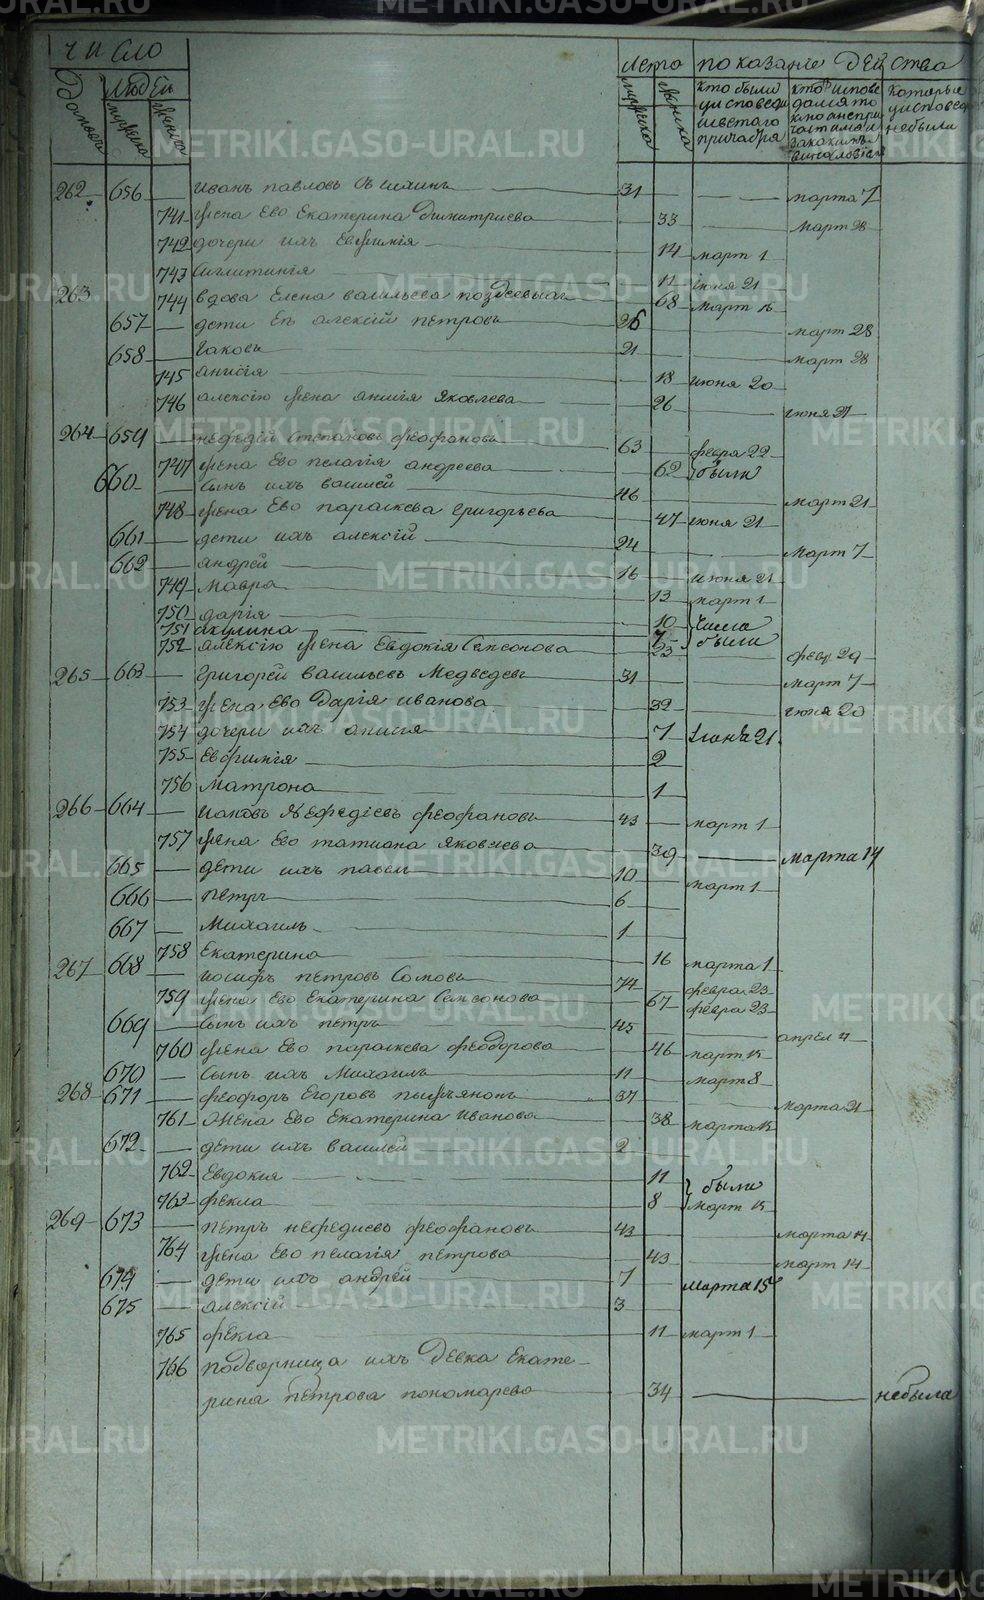 число лето показание действа
домовъ людей мужеска женска мужеска женска кто были у исповеди и светаго причастия кто исповедался токмо а не причастился и за какимъ винословіем которые у исповеди небыли
262 656 Иванъ павловъ 31 марта 7
741 жена Ево Екатерина димитриева 33 март 28
742 дочери ихъ Евфимія 14 март 1
743 11 июня 21
263 744 вдова Елена васильева 68 март 15
657 дети Ея алексій петровъ 26 март 28
658 Іаковъ 21 март 28
745 анисія 18 июня 20
746 алексію жена анисія Яковлева 26 июня 21
264 659 нефедій Степановъ феофановъ 63 февра 22
747 жена Ево пелагія андреева 62 были
660 сынъ ихъ василей 46 март 21
748 жена Ево параскева григорьева 47 июня 21
661 дети ихъ алексій 24 март 7
662 андрей 16 июня 21
749 мавра 13 март 1
750 дарія 10 числа
751 акулина 7 были
752 алексію жена Евдокія Самсонова 23 февр 29
265 663 григорей васильевъ Медведевъ 31 март 7
753 жена Ево Дарія иванова 32 июня 20
754 дочери ихъ анисія 7 июня 21
755 Евфимія 2
756 Матрона 1
266 664 Иаковъ Нефедіевъ феофановъ 43 март 1
757 жена Ево татиана Яковлева 39 марта 14
665 дети ихъ павелъ 10 март 1
666 петръ 6
667 Михаилъ 1
758 Екатерина 16 марта 1
267 668 иосифъ петровъ Сомовъ 74 февра 23
759 жена Ево Екатерина Самсонова 67 февра 23
669 Сынъ ихъ петръ 45 апрел 4
760 жена Ево параскева феодорова 46 март 15
670 Сынъ ихъ Михаилъ 11 март 8
268 671 феодоръ Егоровъ 37 марта 21
761 Жена Ево Екатерина Иванова 38 марта 15
672 дети ихъ василей 2
762 Евдокия 11 были
763 фекла 8 март 15
269 673 петръ нефедиевъ феофановъ 43 марта 14
764 жена Ево пелагія петрова 43 март 14
674 дети ихъ андрей 7 марта 15
675 алексій 3
765 фекла 11 март 1
766 подворница ихъ девка Екате-
рина петрова пономарева 34 небыла
METRIKI.GASO-URAL.RU